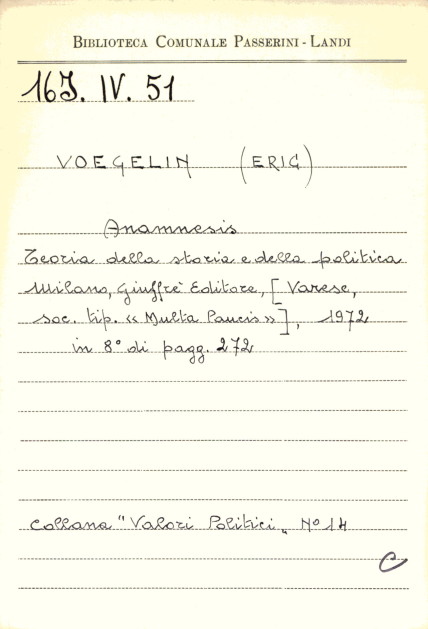 BIBLIOTECA COMUNALE PASSERINI - LANDI
16J. IV. 51
VOEGELIN (ERIC)
Anamnesis
Teoria della storia e della politica
Milano, Giuffrè Editore, [Varese,
soc. tip. «Multa Paucis»], 1972
in 8° di pagg. 272
Collana "Valori Politici„ N° 14
C